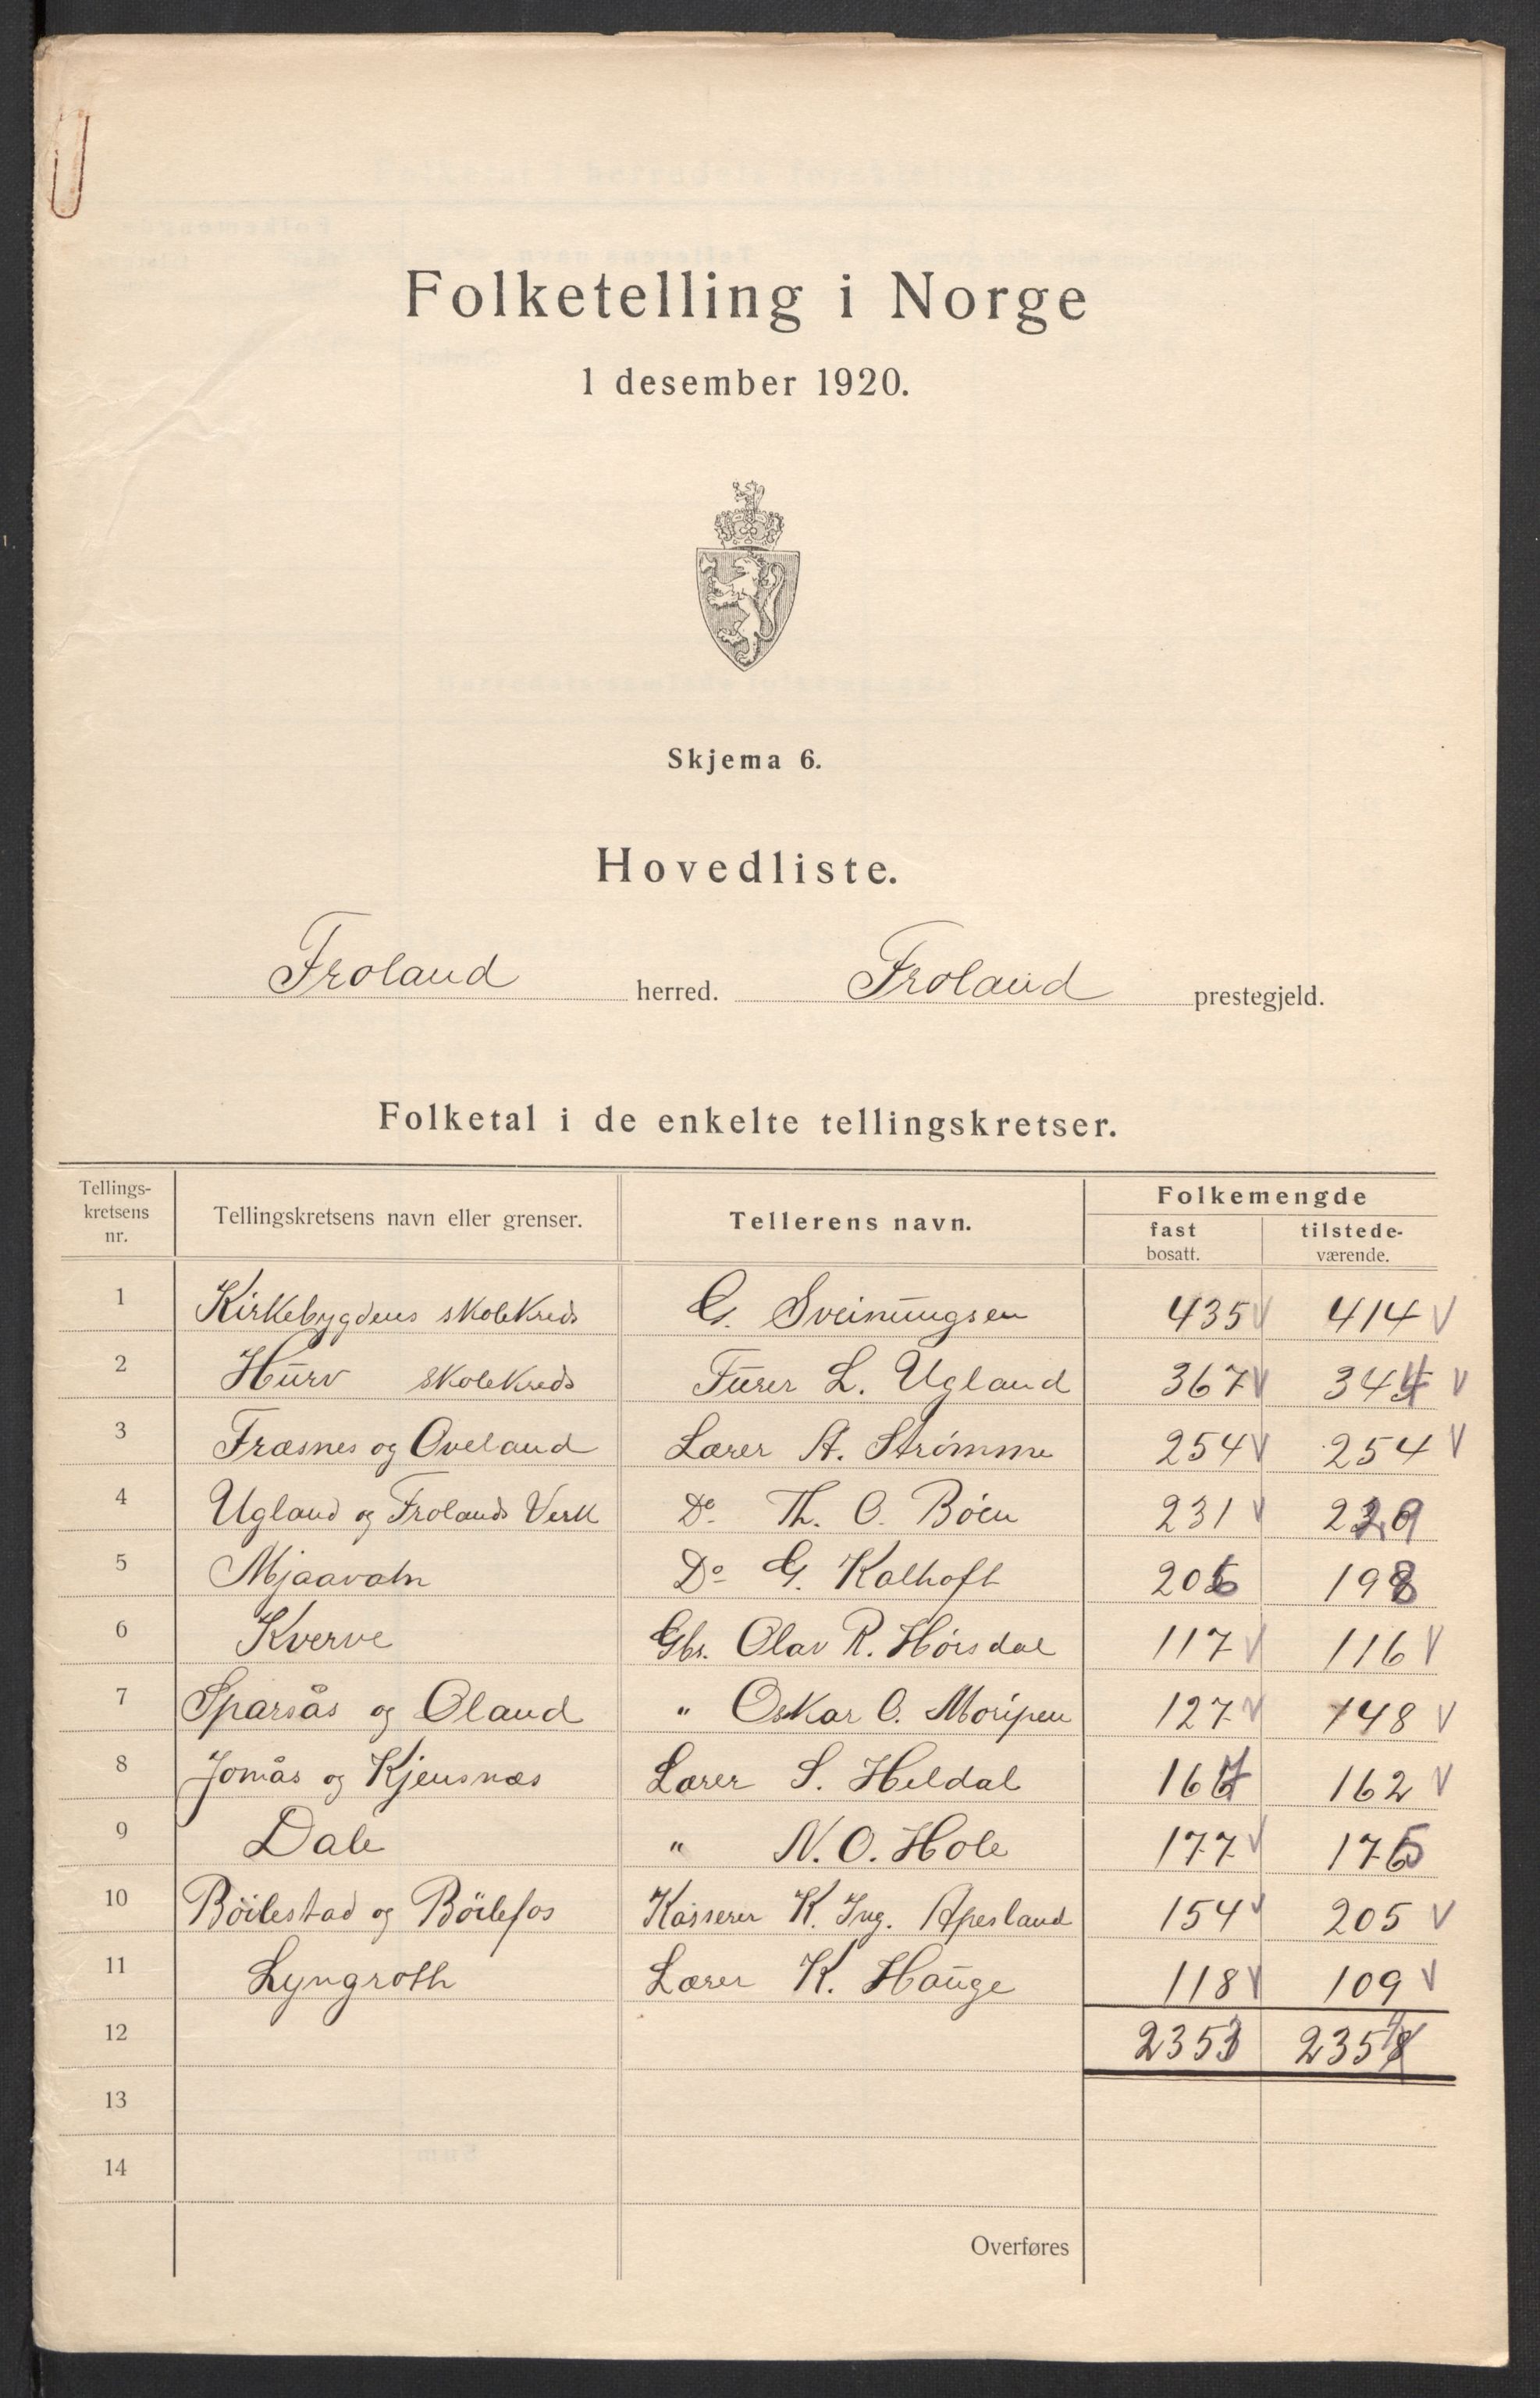 Folketelling i Norge
1 desember 1920.
Skjema 6.
Hovedliste.
Froland herred. Froland prestegjeld.
Folketal i de enkelte tellingskretser.
Tellings-
kretsens
nr.
Tellingskretsens navn eller grenser.
Tellerens navn.
Folkemengde
fast
bosatt.
tilstede-
værende.
1 Kirkebygdens skolekreds G. Sveinungsen 435 V 414 V
2 Hurv skolekreds Furer L. Ugland 367 V 344 V
3 Fræsnes og Oveland Lærer A. Strømme 254 V 254 V
4 Ugland og Frolands Verk Do. Th. O. Böen 231 V 229
5 Mjaavatn Do G. Kalhoft 206 198
6 Kverve Gbr. Olav R. Hörsdal 117 V 116 V
7 Sparsås og Oland " Oskar O. Moripen 127 V 148 V
8 Jomås og Kjensnæs Lærer S. Heldal 167 162 V
9 Dale " N. O. Hole 177 V 175
10 Böilestad og Böilefos Kasserer K. Ing. Apesland 154 V 205 V
11 Lyngroth Lærer K. Hauge 118 V 109 V
12 2353 2354
13
14
Overføres